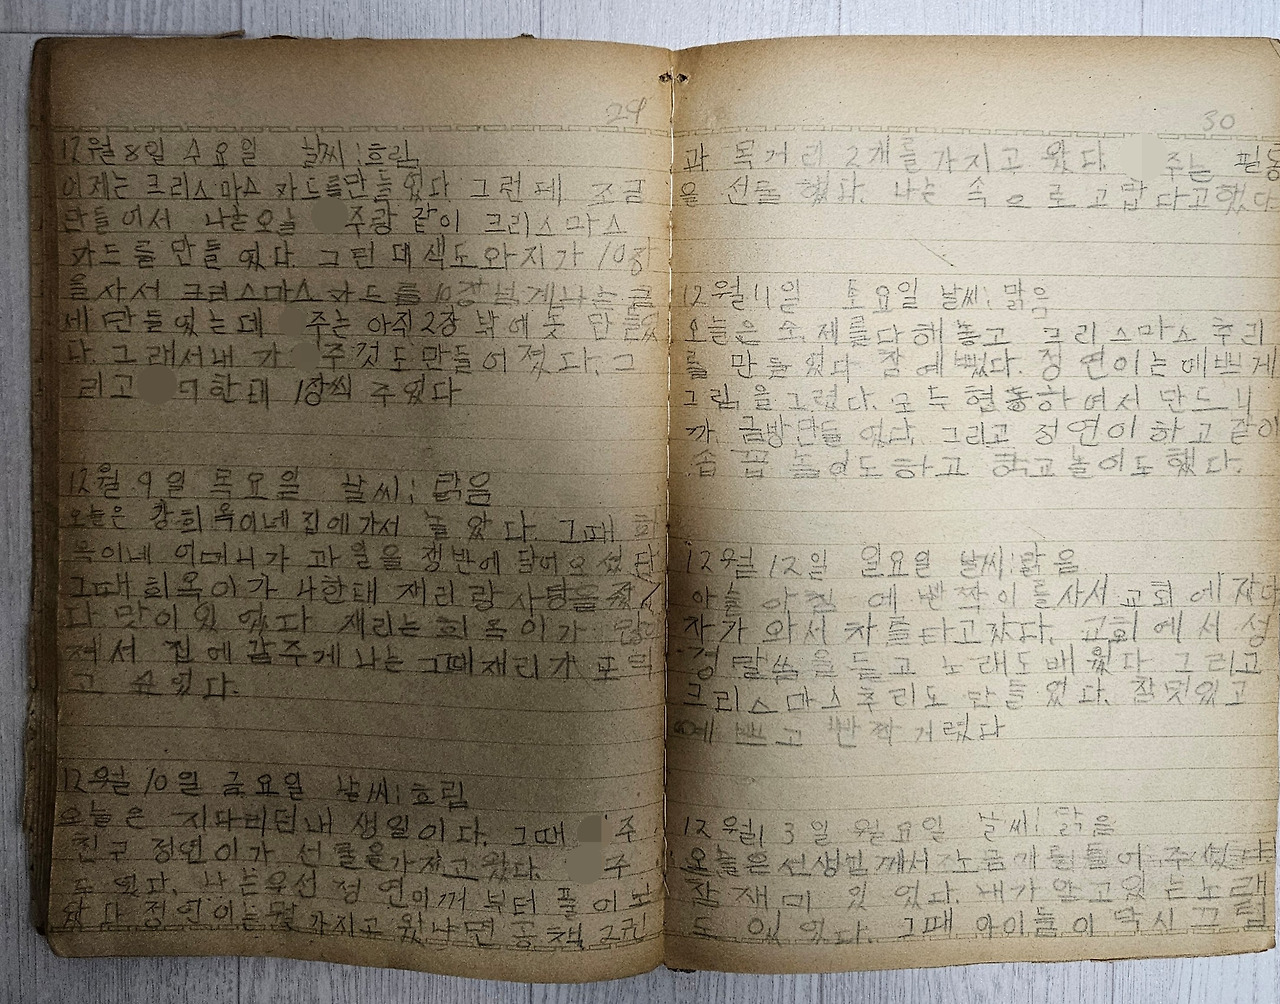 29
12월 8일 수요일 날씨:흐림
어제는 크리스마스 카드를만들었다 그런데 조금
만들어서 나는오늘 주랑 같이 크리스마스
카드를 만들었다. 그런대색도와지가 10장
을사서 크리스마스카드를 10장 나는금
세만들었는데 주는 아직2장 밖에못 만들었
다. 그래서내가 주것도만들어젔다. 그
리고 한태 1장씩 주었다
12월 9일 목요일 날씨: 맑음
오늘은 강희옥이네집에가서 놀았다. 그때 희
옥이네 어머니가 과일을 쟁반에 담어오셨다
그때희옥이가 나한태 재리랑사탕을줬
다 맛이있었다 재리는희옥이가
저서 집에갈주게 나는그때재리가
고 수었다.
12월 10일 금요일 날씨:흐림
오늘은 지다리던내 생일이다. 그때 주
친구 정연이가 선물을가저고왔다. 주
두었다. 나는우선정연이꺼부터 풀어보
왔다 정연이는뭘가지고왔냐면 공책그런
30
과 목거리 2개를가지고 왔다. 주는 필통
을 선물했다. 나는 속으로고맙다고했다
12월11일 토요일 날씨:맑음
오늘은숙제를다해놓고 크리스마스추리
를 만들었다 참예뻤다. 정연이는예쁘게
그림을그렸다. 모두협동하여서만드니
까 금방만들었다. 그리고 정연이하고같이
솝꼽놀이도하고 학교놀이도했다.
12월12일 일요일 날씨:맑음
오늘아침에 반짝이를사서교회에
차가와서차를타고갔다. 교회에서성
경말씀을듣고 노래도배웠다 그리고
크리스마스추리도만들었다. 참멋있고
예쁘고 반짝거렸다
12월13일 월요일 날씨:맑음
오늘은선생님께서노금기를틀어주셨다
참재미있었다. 내가알고있는노래
도 있었다. 그때 아이들이 닥시그럼